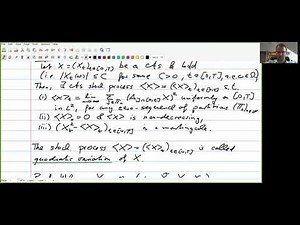 Let X = (X_t)_{t∈[0,T]} be a cts & bdd
(i.e. |X_t(ω)| ≤ C for some C>0, t∈[0,T], a.e. ω∈Ω)
Then, ∃ cts stoch process <X> = (<X>_t)_{t∈[0,T]} s.t.
(i) <X>_t = lim uniformly in [0,T]
in L², for any zero-sequence of partitions
(ii) <X>_0 = 0 & <X> is non-decreasing,
(iii) (X_t² - <X>_t)_{t∈[0,T]} is a martingale.
The stoch process <X> = (<X>_t)_{t∈[0,T]} is called
quadratic variation of X.